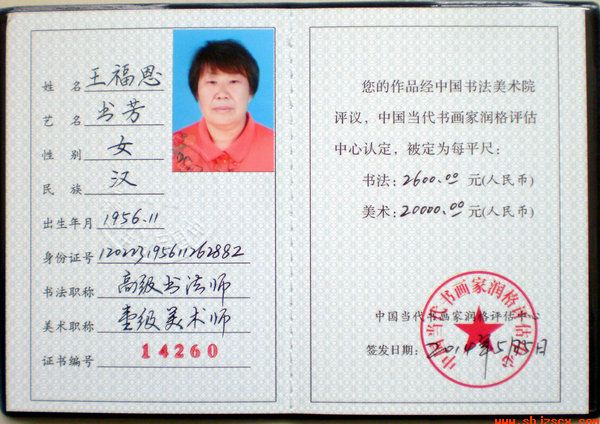 姓 名 王福恩
艺 名 书芳
性 别 女
民 族 汉
出生年月 1956.11
身份证号 120223195611262882
书法职称 高级书法师
美术职称 壹级美术师
证书编号 14260
您的作品经中国书法美术院
评议，中国当代书画家润格评估
中心认定，被定为每平尺：
书法：2600.00 元(人民币)
美术：20000.00 元(人民币)
中国当代书画家润格评估中心
签发日期：2014年5月5日
中国当代书画家润格评估中心
www.shjzscx.com